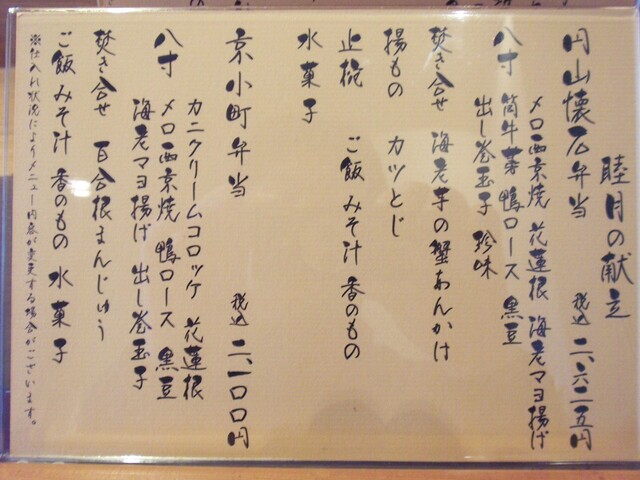 睦月の献立
円山懐石弁当 税込 二、六二五円
メロ西京焼 花蓮根 海老マヨ揚げ
八寸 筒牛蒡 鴨ロース 黒豆
出し巻玉子 珍味
焚き合せ 海老芋の蟹あんかけ
揚もの カツとじ
止椀 ご飯 みそ汁 香のもの
水菓子
京小町弁当 税込 二、一〇〇円
カニクリームコロッケ 花蓮根
八寸 メロ西京焼 鴨ロース 黒豆
海老マヨ揚げ 出し巻玉子
焚き合せ 百合根まんじゅう
ご飯 みそ汁 香のもの 水菓子
※仕入れ状況によりメニュー内容が変更する場合がございます。